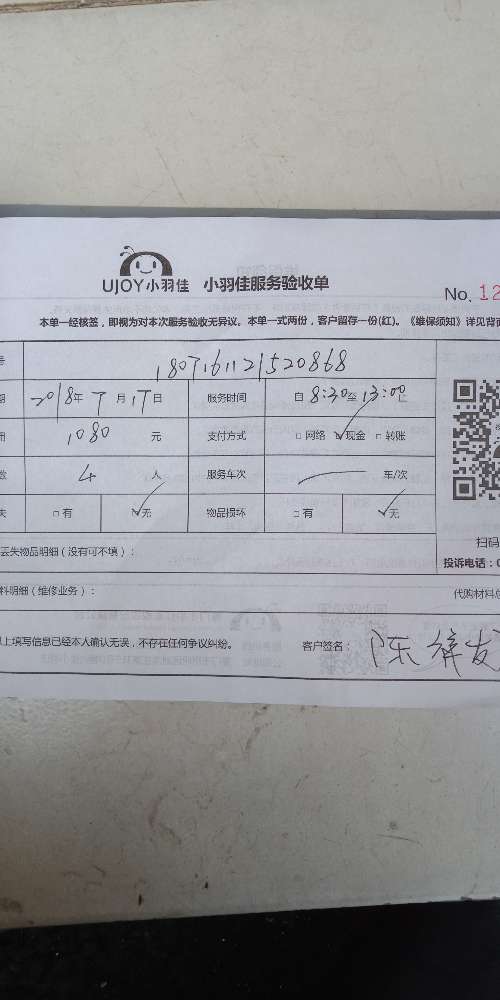 UJOY小羽佳 小羽佳服务验收单
No. 12
本单一经核签，即视为对本次服务验收无异议。本单一式两份，客户留存一份(红)。《维保须知》详见背面
号 1807161121520868
期 2018年7月17日 服务时间 自8:30至13:00止
用 1080元 支付方式 □网络 ☑现金 □转账
数 4人 服务车次 车/次
失 □有 ☑无 物品损坏 □有 ☑无
扫码
丢失物品明细（没有可不填）：
投诉电话：0
料明细（维修业务）： 代购材料总
以上填写信息已经本人确认无误，不存在任何争议纠纷。 客户签名：陈 发